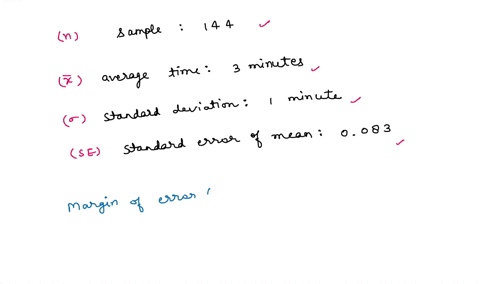 (n) sample : 144 ✓
(x̄) average time : 3 minutes ✓
(σ) standard deviation : 1 minute ✓
(SE) standard error of mean : 0.083 ✓
Margin of error (